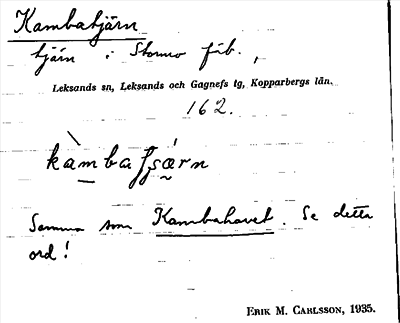 Kambatjärn
tjärn i Stormo fäb.,
Leksands sn, Leksands och Gagnefs tg, Kopparbergs län.
162.
kàmbaʃʃæ̀rn
Samma som Kambahavet. Se detta
ord!
ERIK M. CARLSSON, 1935.